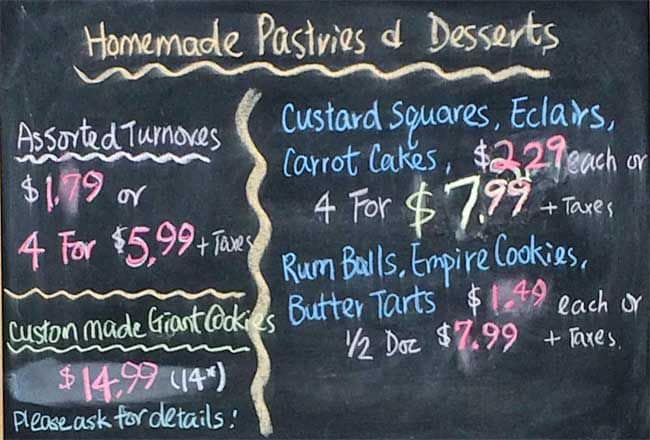 Homemade Pastries & Desserts
Assorted Turnoves
$1.79 or
4 For $5.99 + Taxes
Custom made Giant Cookies
$14.99 (14")
Please ask for details!
Custard Squares, Eclairs,
Carrot Cakes, $2.29 each or
4 For $7.99 + Taxes
Rum Balls, Empire Cookies,
Butter Tarts $1.49 each or
1/2 Doz $7.99 + Taxes.